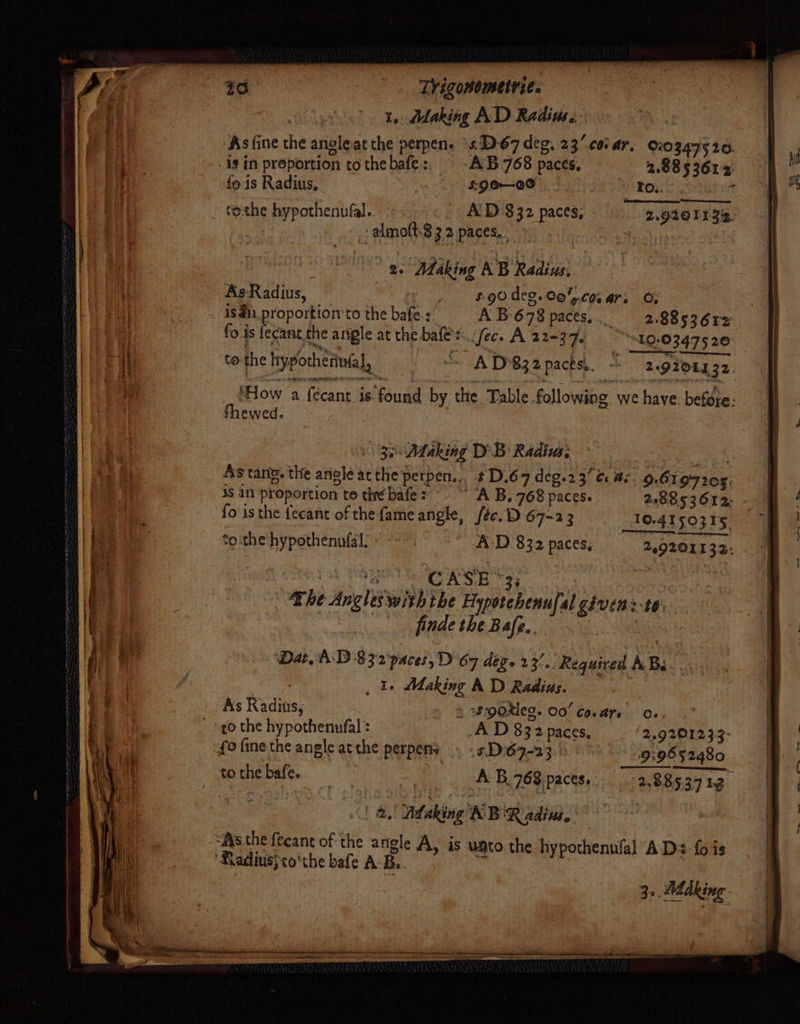 10 Trigonometrie.
1. Making AD Radius.
As sine the angle at the perpen. s D 67 deg. 23′ co: ar. 0:0347520.
is in proportion to the base: AB 768 paces, 2.8853612
so is Radius, s 90—00 10.
to the hypothenusal. AD 832 paces; 2.9201132.
almost 832 paces,
2. Making AB Radius.
As Radius, s 90 deg. 00′, co: ar. 0,
is in proportion to the base: AB 678 paces. 2.8853612
so is secant the angle at the base: sec. A 22-37. 10.0347520
to the hypothenusal, AD 832 paces. 2.9201132.
How a secant is found by the Table following we have before:
shewed.
3. Making DB Radius;
As tang. the angle at the perpen., t D.67 deg. 23′ c. ar. 9.6197205.
is in proportion to the base: AB. 768 paces. 2.8853612:
so is the secant of the same angle, sec. D 67-23 10.4150315,
to the hypothenusal. AD 832 paces, 2,9201132:
CASE 3;
The Angles with the Hypothenusal given: to
finde the Base.
Dat. AD 832 paces, D 67 deg. 23′. Required AB.
1. Making AD Radius.
As Radius, s 90 deg. 00′ co. ar. 0.
to the hypothenusal: AD 832 paces, 2.9201233
so sine the angle at the perpen: s. D 67-23 9.9652480
to the base. AB. 768 paces. 2.8853713
2. Making AB Radius.
As the secant of the angle A, is unto the hypothenusal AD: so is
Radius, to the base A. B.
3. Making